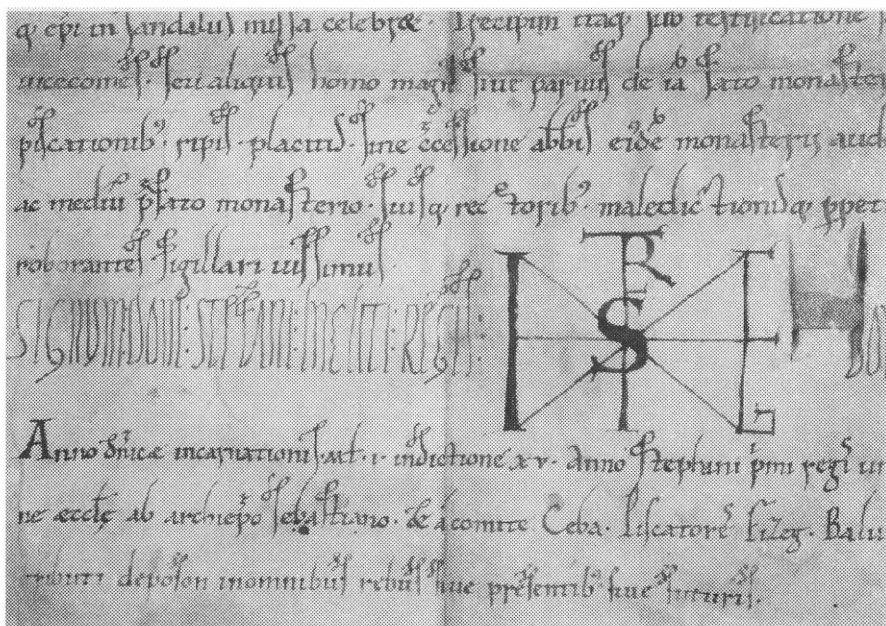 q epi in sandaliis missa celebret. Precipim itaq, sub testificatione
uicecomes. seu aliquis homo magn siue paruus de ia fato monaster
piscationib; ripis. placitis. sine ccessione abbis eide monasterij aud
ac mediu pfato monasterio. suisq rectorib; maledictionisq, ppet
roborantes sigillari iussimus.
SIGNUM: DOMI: STEPHANI: INCLITI: REGIS:
Anno dnicae incarnationis. mil. i. indictione xv. Anno Stephani pmi regis un
ne aecclę ab archiepo sebastiano. & a comite Ceba. Piscatores Fizeg. Balu
tributi deposon in omnibus rebus siue presentib; siue futuris.